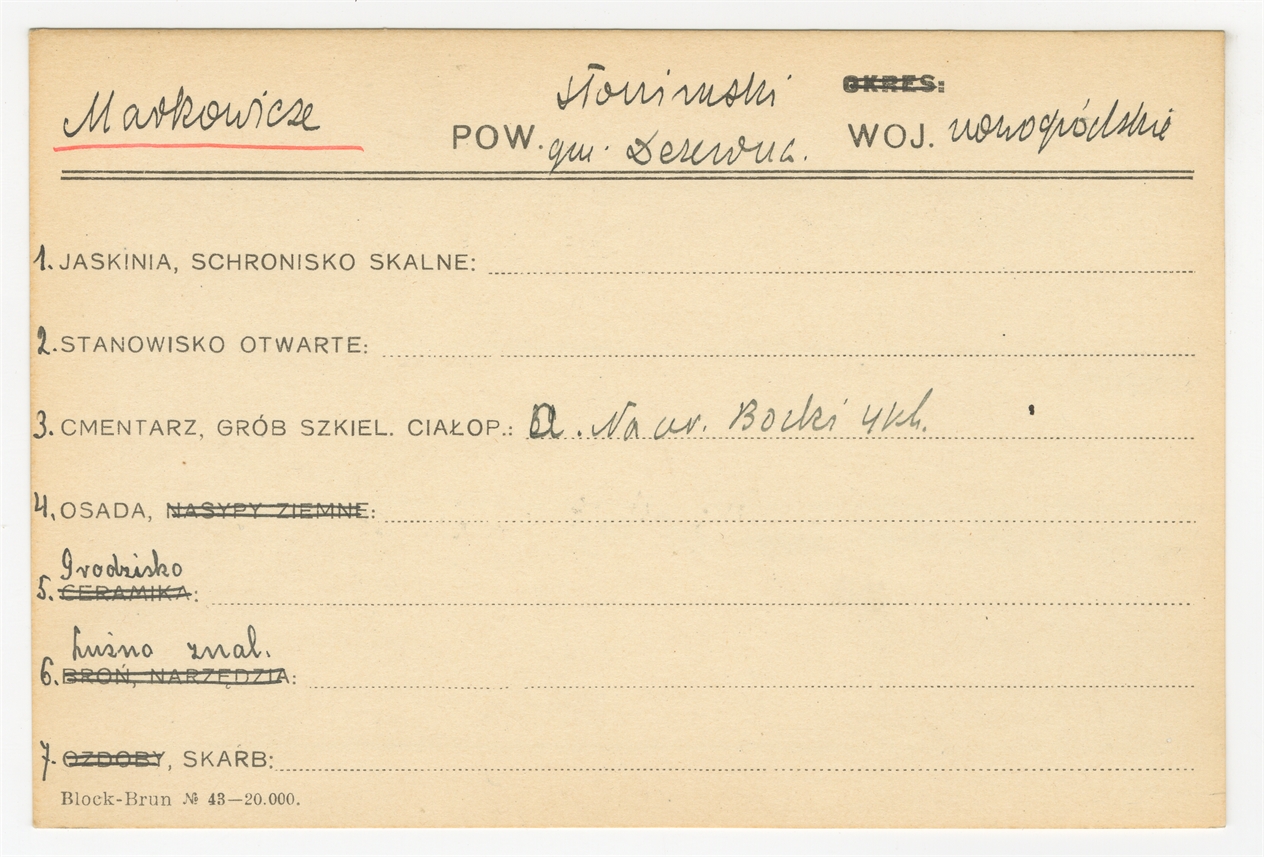 Markowicze
POW. słonimski
gm. Derewna.
OKRES:
WOJ. nowogródzkie
1. JASKINIA, SCHRONISKO SKALNE:
2. STANOWISKO OTWARTE:
3. CMENTARZ, GRÓB SZKIEL. CIAŁOP.: Na ur. Boćki
4. OSADA, NASYPY ZIEMNE:
Grodzisko
5. CERAMIKA:
Luźno znal.
6. BROŃ, NARZĘDZIA:
7. OZDOBY, SKARB:
Block-Brun № 43—20.000.